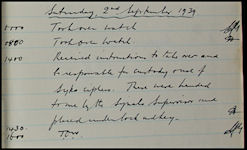 Saturday 2nd September 1939
0000 Took over watch
0800 Took over watch.
1400 Received instructions to take over and
be responsible for custody one of
Syko cyphers. These were handed
to me by the Signals Supervisor and
placed under lock and key.
1430.
1600